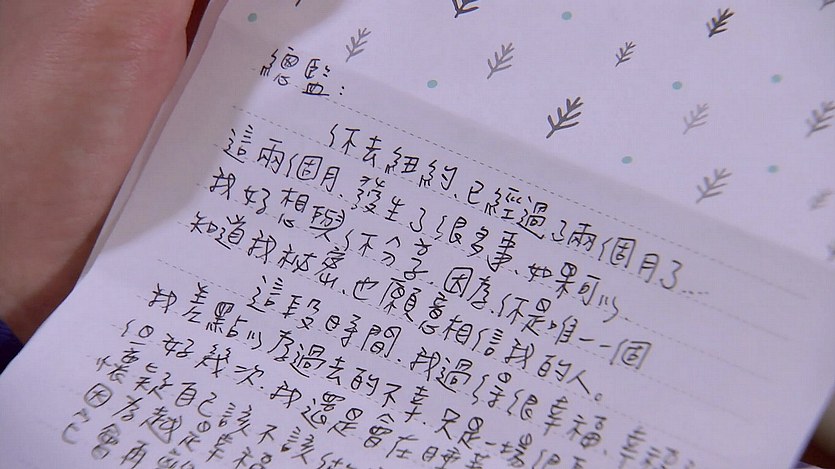 總監：
你去紐約、已經過了兩個月了...
這兩個月發生了很多事、如果可以
我好想與你分享、因為你是唯一一個
知道我秘密、也願意相信我的人。
這段時間、我過得很幸福、幸福
我差點以為過去的不幸、只是一場很
但好幾次、我還是會在睡
懷疑自己該不該
因為越是幸福
己會再